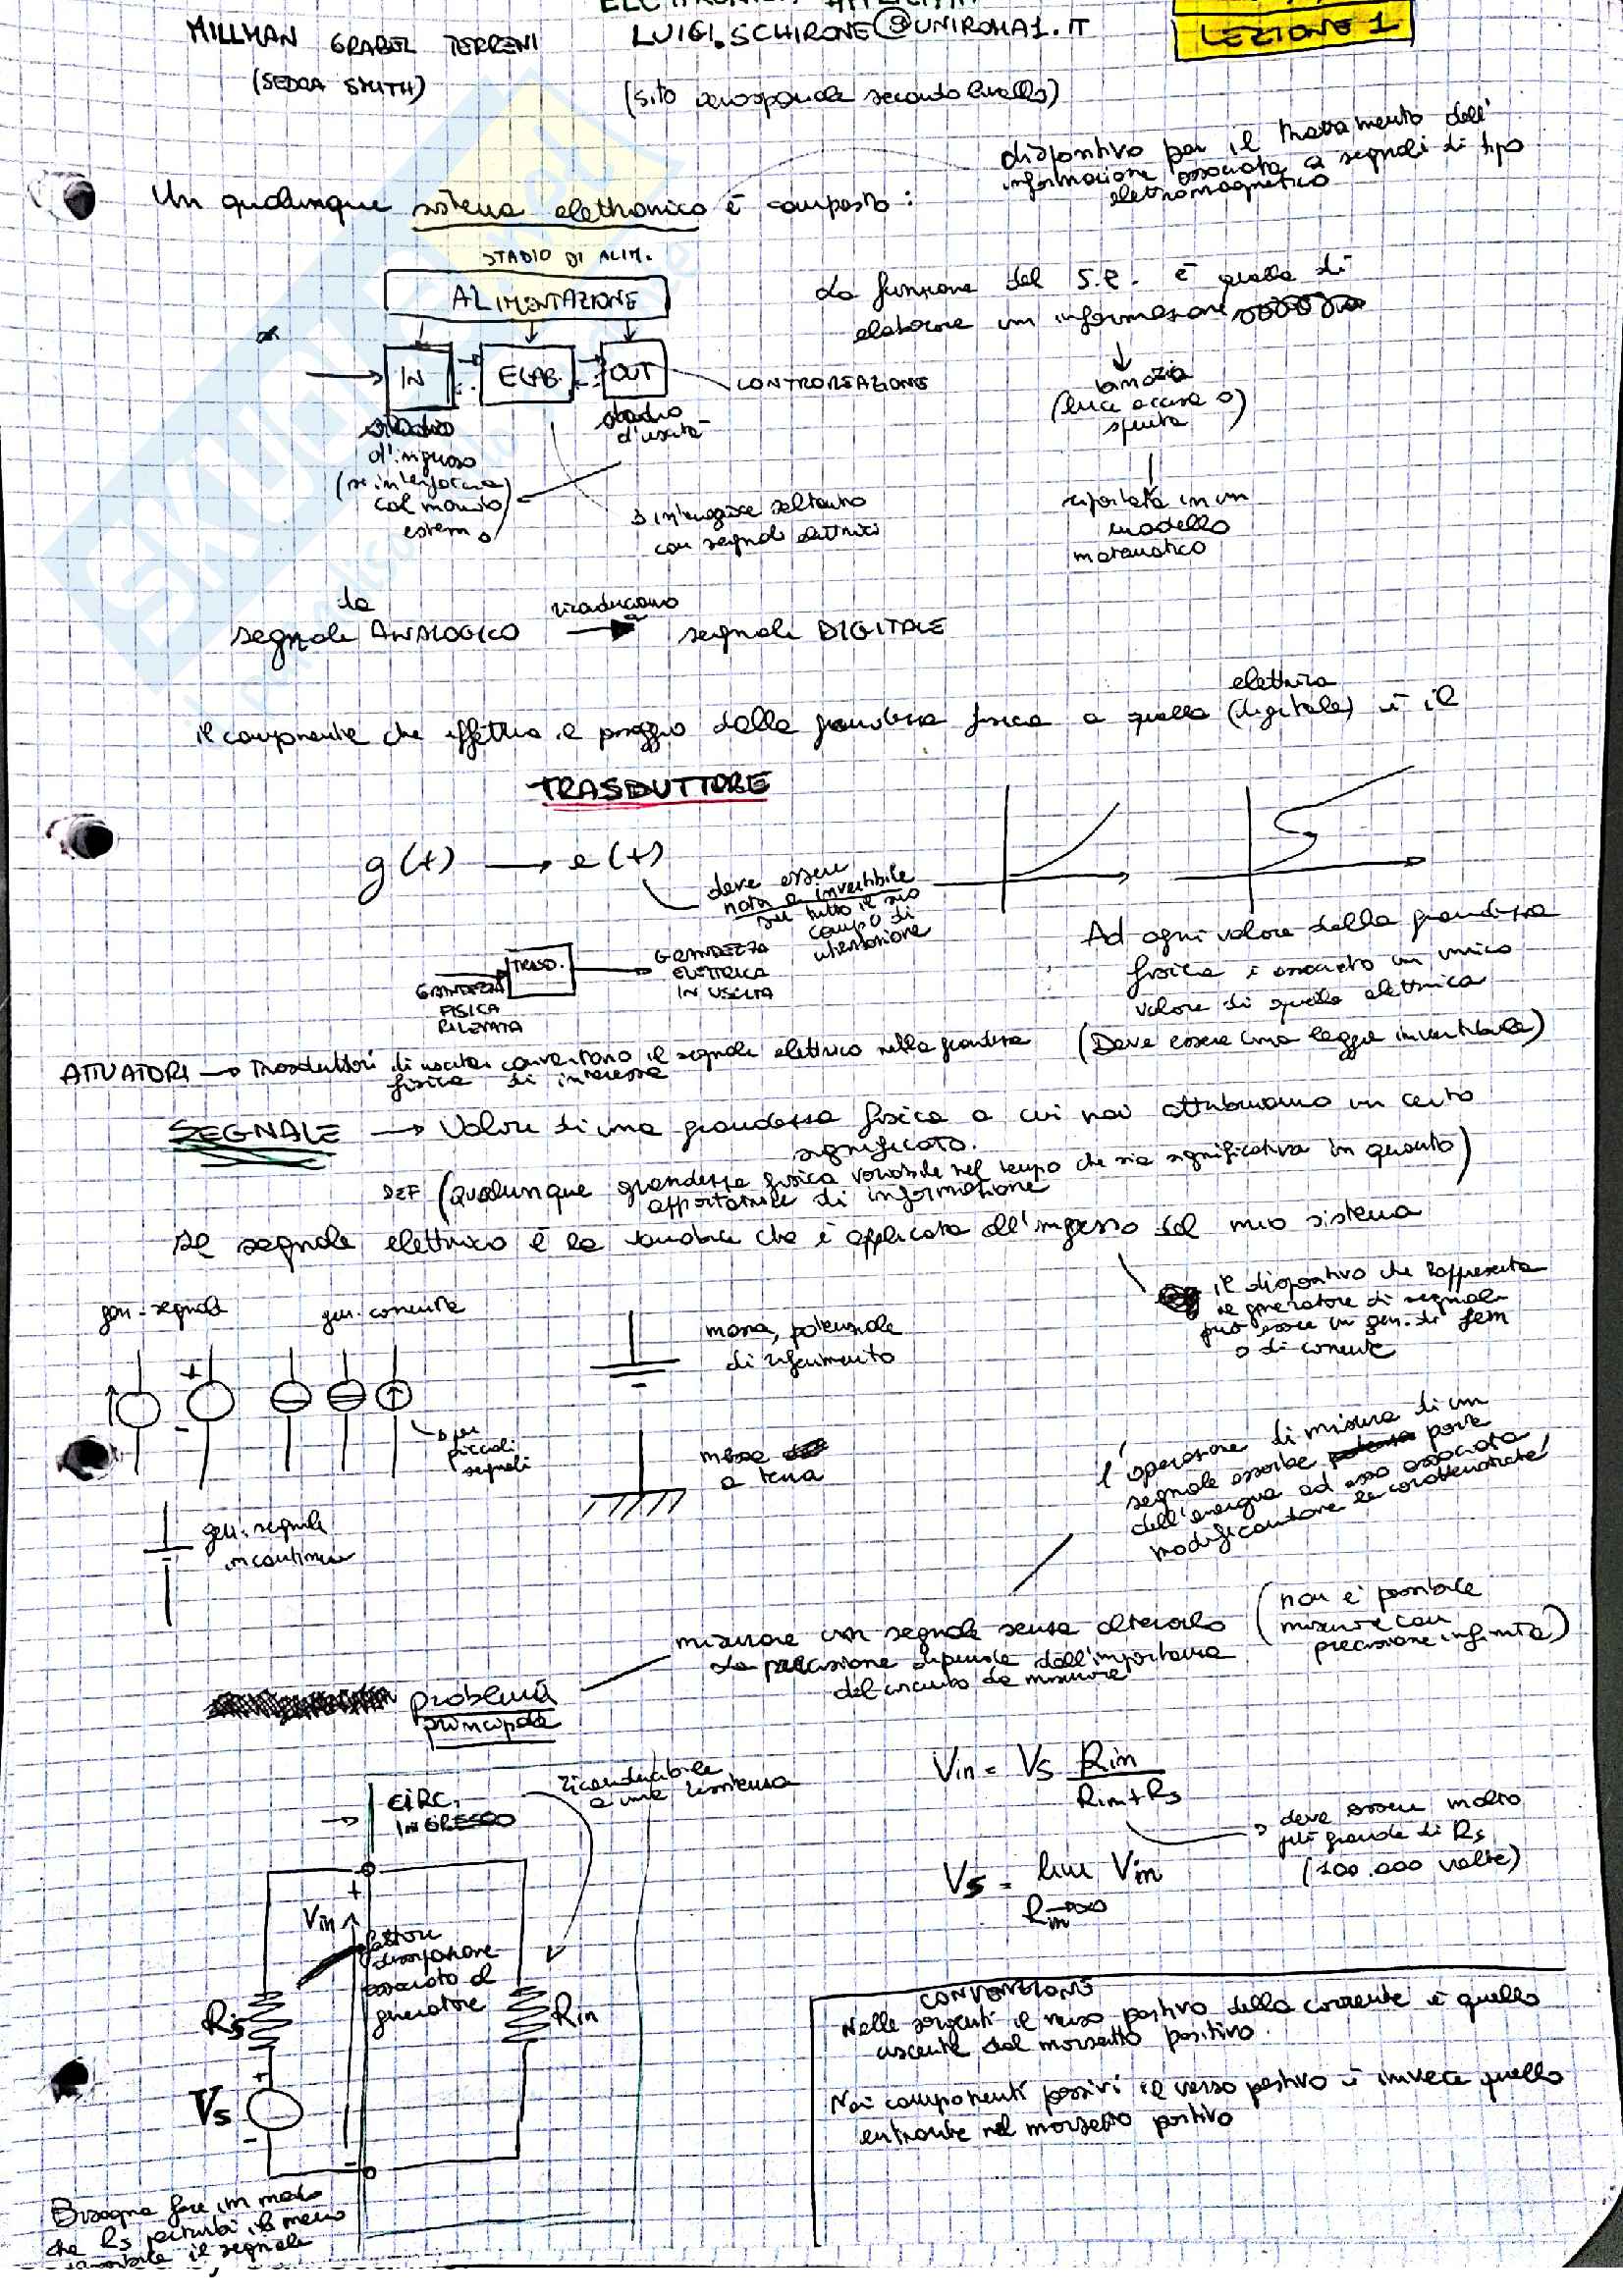 MILLMAN GRABEL TERRENI
(SEDRA SMITH)
LUIGI.SCHIRONE@UNIROMA1.IT
LEZIONE 1
(sito aerospaziale secondo livello)
dispositivo per il trattamento dell'
informazione associata a segnali di tipo
elettromagnetico
Un qualunque sistema elettronico è composto:
STADIO DI ALIM.
ALIMENTAZIONE
IN
ELAB.
OUT
CONTROREAZIONE
stadio
d'ingresso
(si interfaccia
col mondo
esterno)
stadio
d'uscita
interagisce soltanto
con segnali elettrici
La funzione del S.e. è quella di
elaborare un informazione
(luce accesa o
spenta)
riportata in un
modello
matematico
da
segnale ANALOGICO
riconduciamo
a
segnale DIGITALE
il componente che effettua il passaggio dalla grandezza fisica a quella (digitale) è il
elettrica
TRASDUTTORE
g(t) → e(t)
deve essere
nota e invertibile
su tutto il suo
campo di
utilizzazione
TRASD.
GRANDEZZA
FISICA
RILEVATA
GRANDEZZA
ELETTRICA
IN USCITA
Ad ogni valore della grandezza
fisica è associato un unico
valore di quella elettrica
(Deve essere una legge invertibile)
ATTUATORI → Trasduttori di uscita: convertono il segnale elettrico nella grandezza
fisica di interesse
SEGNALE → Valore di una grandezza fisica a cui noi attribuiamo un certo
significato.
DEF (qualunque grandezza fisica variabile nel tempo che sia significativa in quanto
apportatrice di informazione)
Il segnale elettrico è la grandezza che è applicata all'ingresso del mio sistema
il dispositivo che rappresenta
il generatore di segnale
può essere un gen. di fem
o di corrente
gen. segnale
gen. corrente
+
-
per
piccoli
segnali
massa, potenziale
di riferimento
messa
a terra
gen. segnale
in continua
l'operazione di misura di un
segnale assorbe parte
dell'energia ad esso associata,
modificandone le caratteristiche
misurare un segnale senza alterarlo
La precisione dipende dall'importanza
del circuito da misurare
(non è possibile
misurare con
precisione infinita)
problema
principale
CIRC.
INGRESSO
riconducibile
a una resistenza
Vin = Vs Rin
Rin+Rs
deve essere molto
più grande di Rs
(100.000 volte)
Vs = lim Vin
Rin→∞
+
Vin
fattore
dissipazione
associato al
generatore
Rs
Rin
+
Vs
-
-
CONVENZIONE
Nelle sorgenti il verso positivo della corrente è quello
uscente dal morsetto positivo.
Nei componenti passivi il verso positivo è invece quello
entrante nel morsetto positivo
Bisogna fare in modo
che Rs perturbi il meno
possibile il segnale